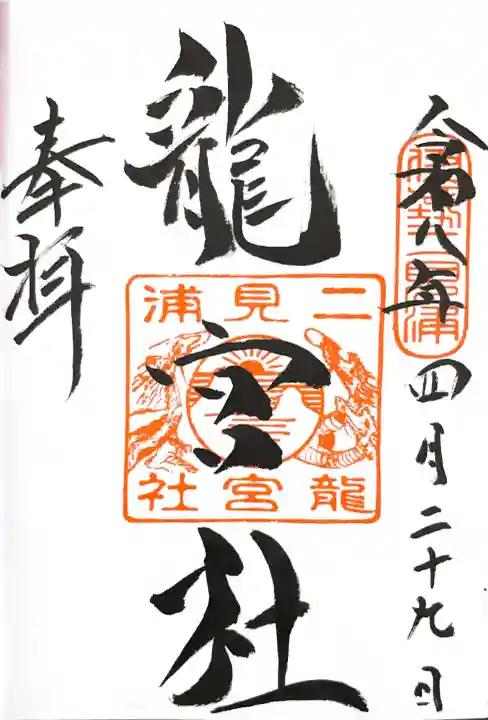 令和八年四月二十九日
伊勢二見浦
龍宮社
二見浦
龍宮社
奉拝